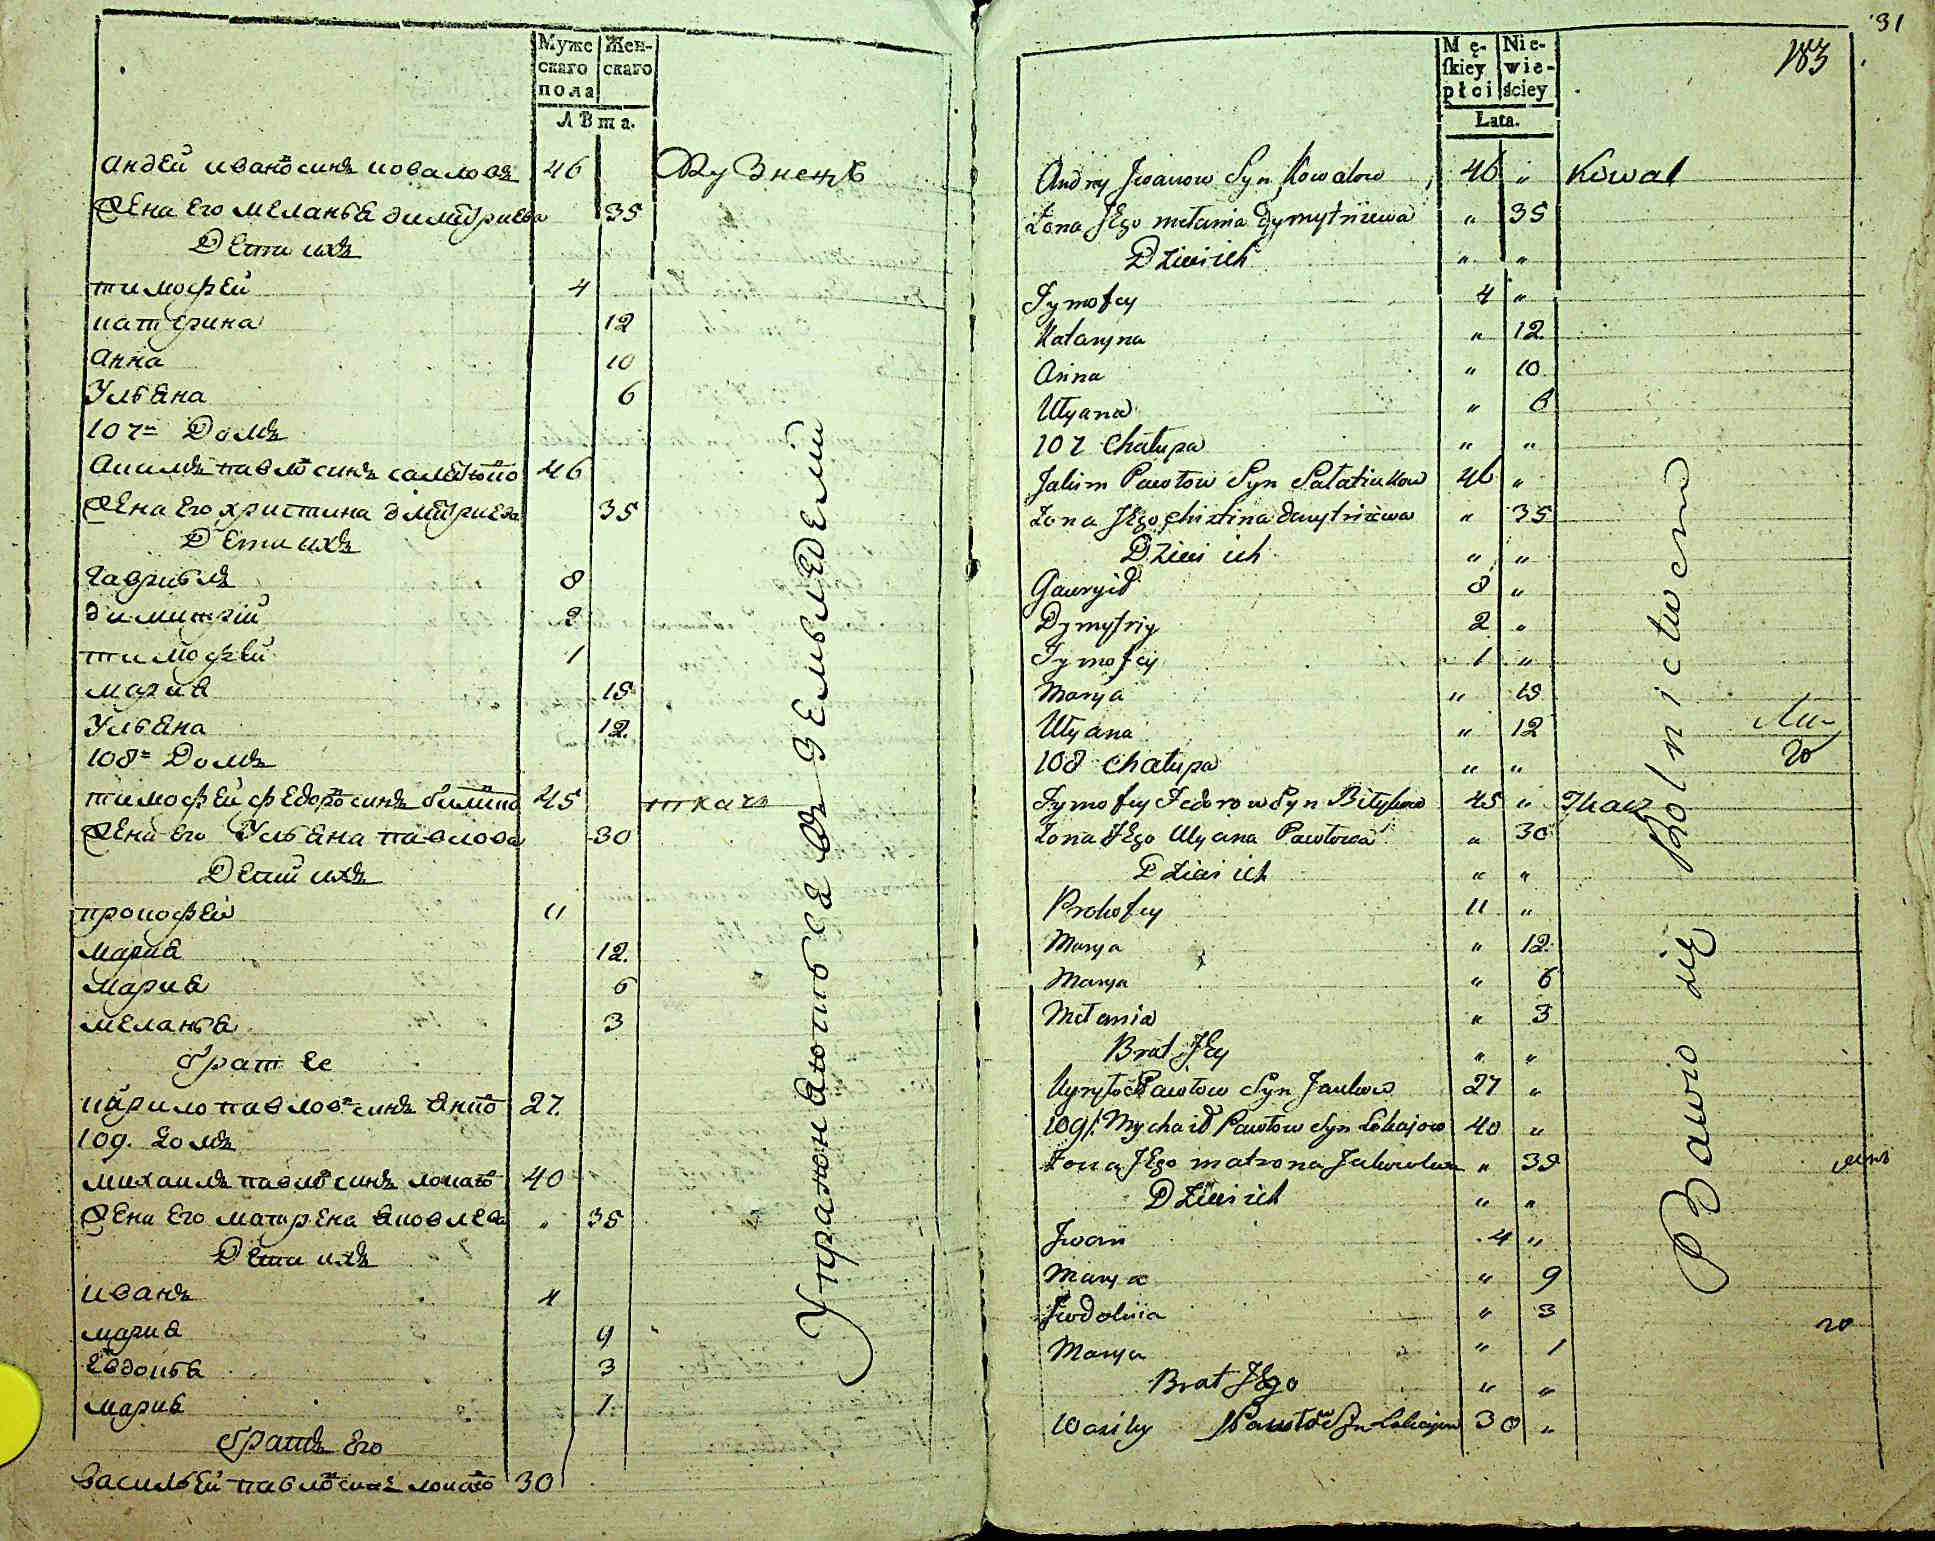 Муже скаго пола
Жен- скаго
Лѣта.
Андей иванов синъ коваловъ 46 Кузнецъ
Жена Его меланья димитриева 35
Дети ихъ
тимофей 4
катерина 12
Анна 10
Ульяна 6
107 Домъ
Акимъ павлов синъ 46
Жена Его христина димитриева 35
Дети ихъ
гаврилъ 8
димитрий 2
тимофей 1
мария 15
Ульяна 12
108 Домъ
тимофей федоров синъ 45 ткачь
Жена его Ульяна павлова 30
Дети ихъ
прокофей 11
мария 12
мария 6
меланья 3
брат Ее
кирило павлов синъ 27
109. Домъ
михаилъ павлов синъ 40
Жена Его матрена яковлева " 35
Дети ихъ
иванъ 4
мария 9
Евдокья 3
мария 1
братъ Его
василЬей павлов синъ 30
Упражняються въ Земльеделии
31
183
Mę- skiey płci
Nie- wie- ściey
Lata.
Andrey Jwanow Syn Kowalow 46 " Kowal
Żona JEgo mełania Dymytriiewa " 35
Dzieci ich " "
Tymofey 4 "
Kataryna " 12
Anna " 10
Ulyana " 6
107 Chałupa " "
Jakim Pawłow Syn 46 "
Żona JEgo Christina Dmytriiewa " 35
Dzieci ich " "
Gawryił 8 "
Dymytriy 2 "
Tymofey 1 "
Marya " 15
Ulyana " 12
108 Chałupa " "
Tymofey Fedorow Syn 45 " Tkacz
Żona JEgo Ulyana Pawłowa " 30
Dzieci ich " "
Prokofey 11 "
Marya " 12
Marya " 6
Mełania " 3
Brat JEy " "
Kyryło Pawłow Syn Jankow 27 "
109 Mychaił Pawłow Syn 40 "
Żona JEgo matrona " 35
Dzieci ich " "
Jwan 4 "
Marya " 9
Jwdokia " 3
Marya " 1
Brat JEgo " "
Wasily Pawłow Syn 30 "
Bawio się Rolnictwem